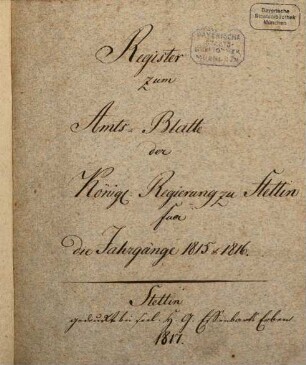 Bayerische
Staatsbibliothek
München
BAYERISCHE
STAATS-
BIBLIOTHEK
MÜNCHEN
Register
zum
Amts-Blatte
der
Königl Regierung zu Stettin
fuer
die Jahrgänge 1815 & 1816.
Stettin
gedruckt bei seel. H. G. Effenbarts Erben
1817.